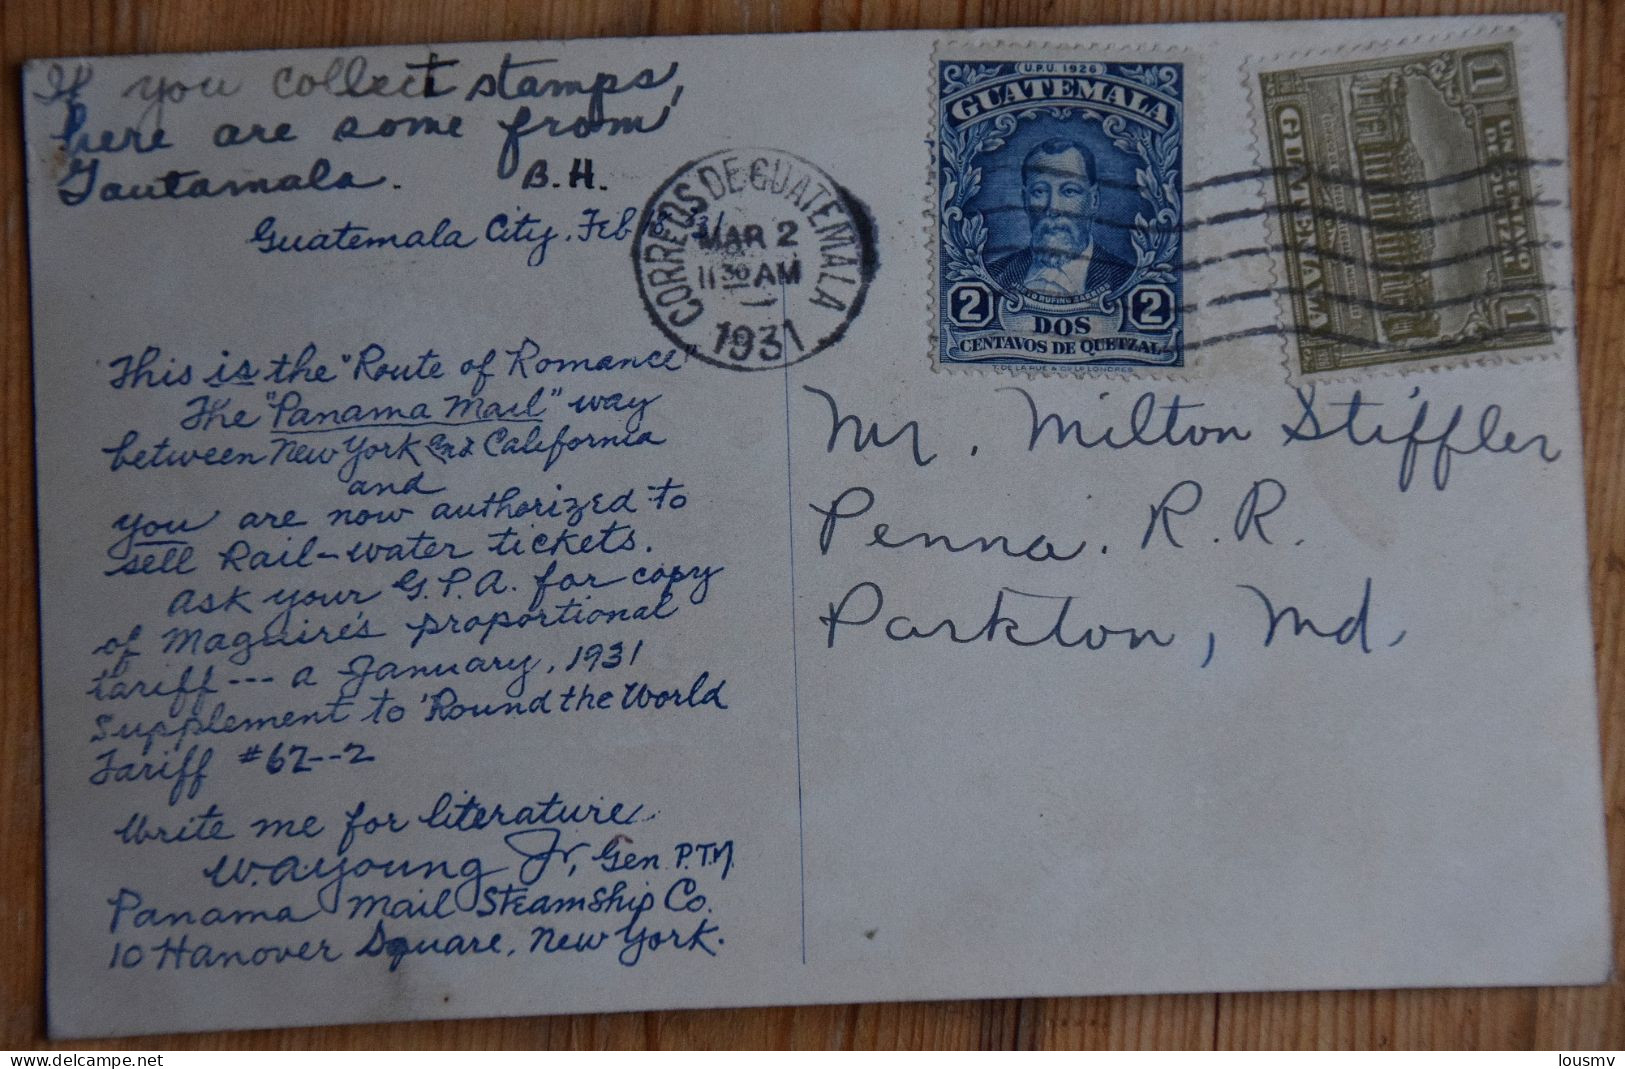 If you collect stamps,
here are some from
Gautamala. B.H.
Guatemala City, Feb 18, 31
This is the "Route of Romance"
The "Panama Mail" way
between New York and California
and
you are now authorized to
sell Rail-water tickets.
Ask your G.P.A. for copy
of Maguire's proportional
tariff --- a January, 1931
Supplement to 'Round the World
Tariff #62--2
Write me for literature
W.A. Young Jr, Gen P.T.M.
Panama Mail Steamship Co.
10 Hanover Square, New York.
CORREOS DE GUATEMALA
MAR 2
11 30 AM
1931
U.P.U. 1926
GUATEMALA
JUSTO RUFINO BARRIOS
2 DOS 2
CENTAVOS DE QUETZAL
T. DE LA RUE & Co LD LONDRES
1 UN CENTAVO 1
DE QUETZAL
GUATEMALA
Mr. Milton Stiffler
Penna. R.R.
Parkton, Md.
delcampe.net
lousmv